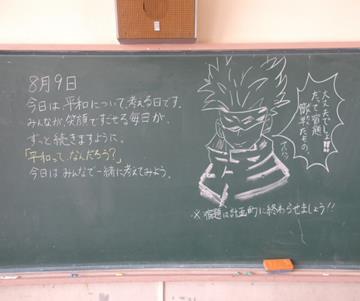 8月9日
今日は、平和について、考える日です。
みんなが、笑顔ですごせる毎日が、
ずっと続きますように。
「平和って、なんだろう？」
今日は みんなで一緒に考えてみよう。
大丈夫でしょ!!!
だって宿題
※ 宿題は計画的に終わらせましょう!!